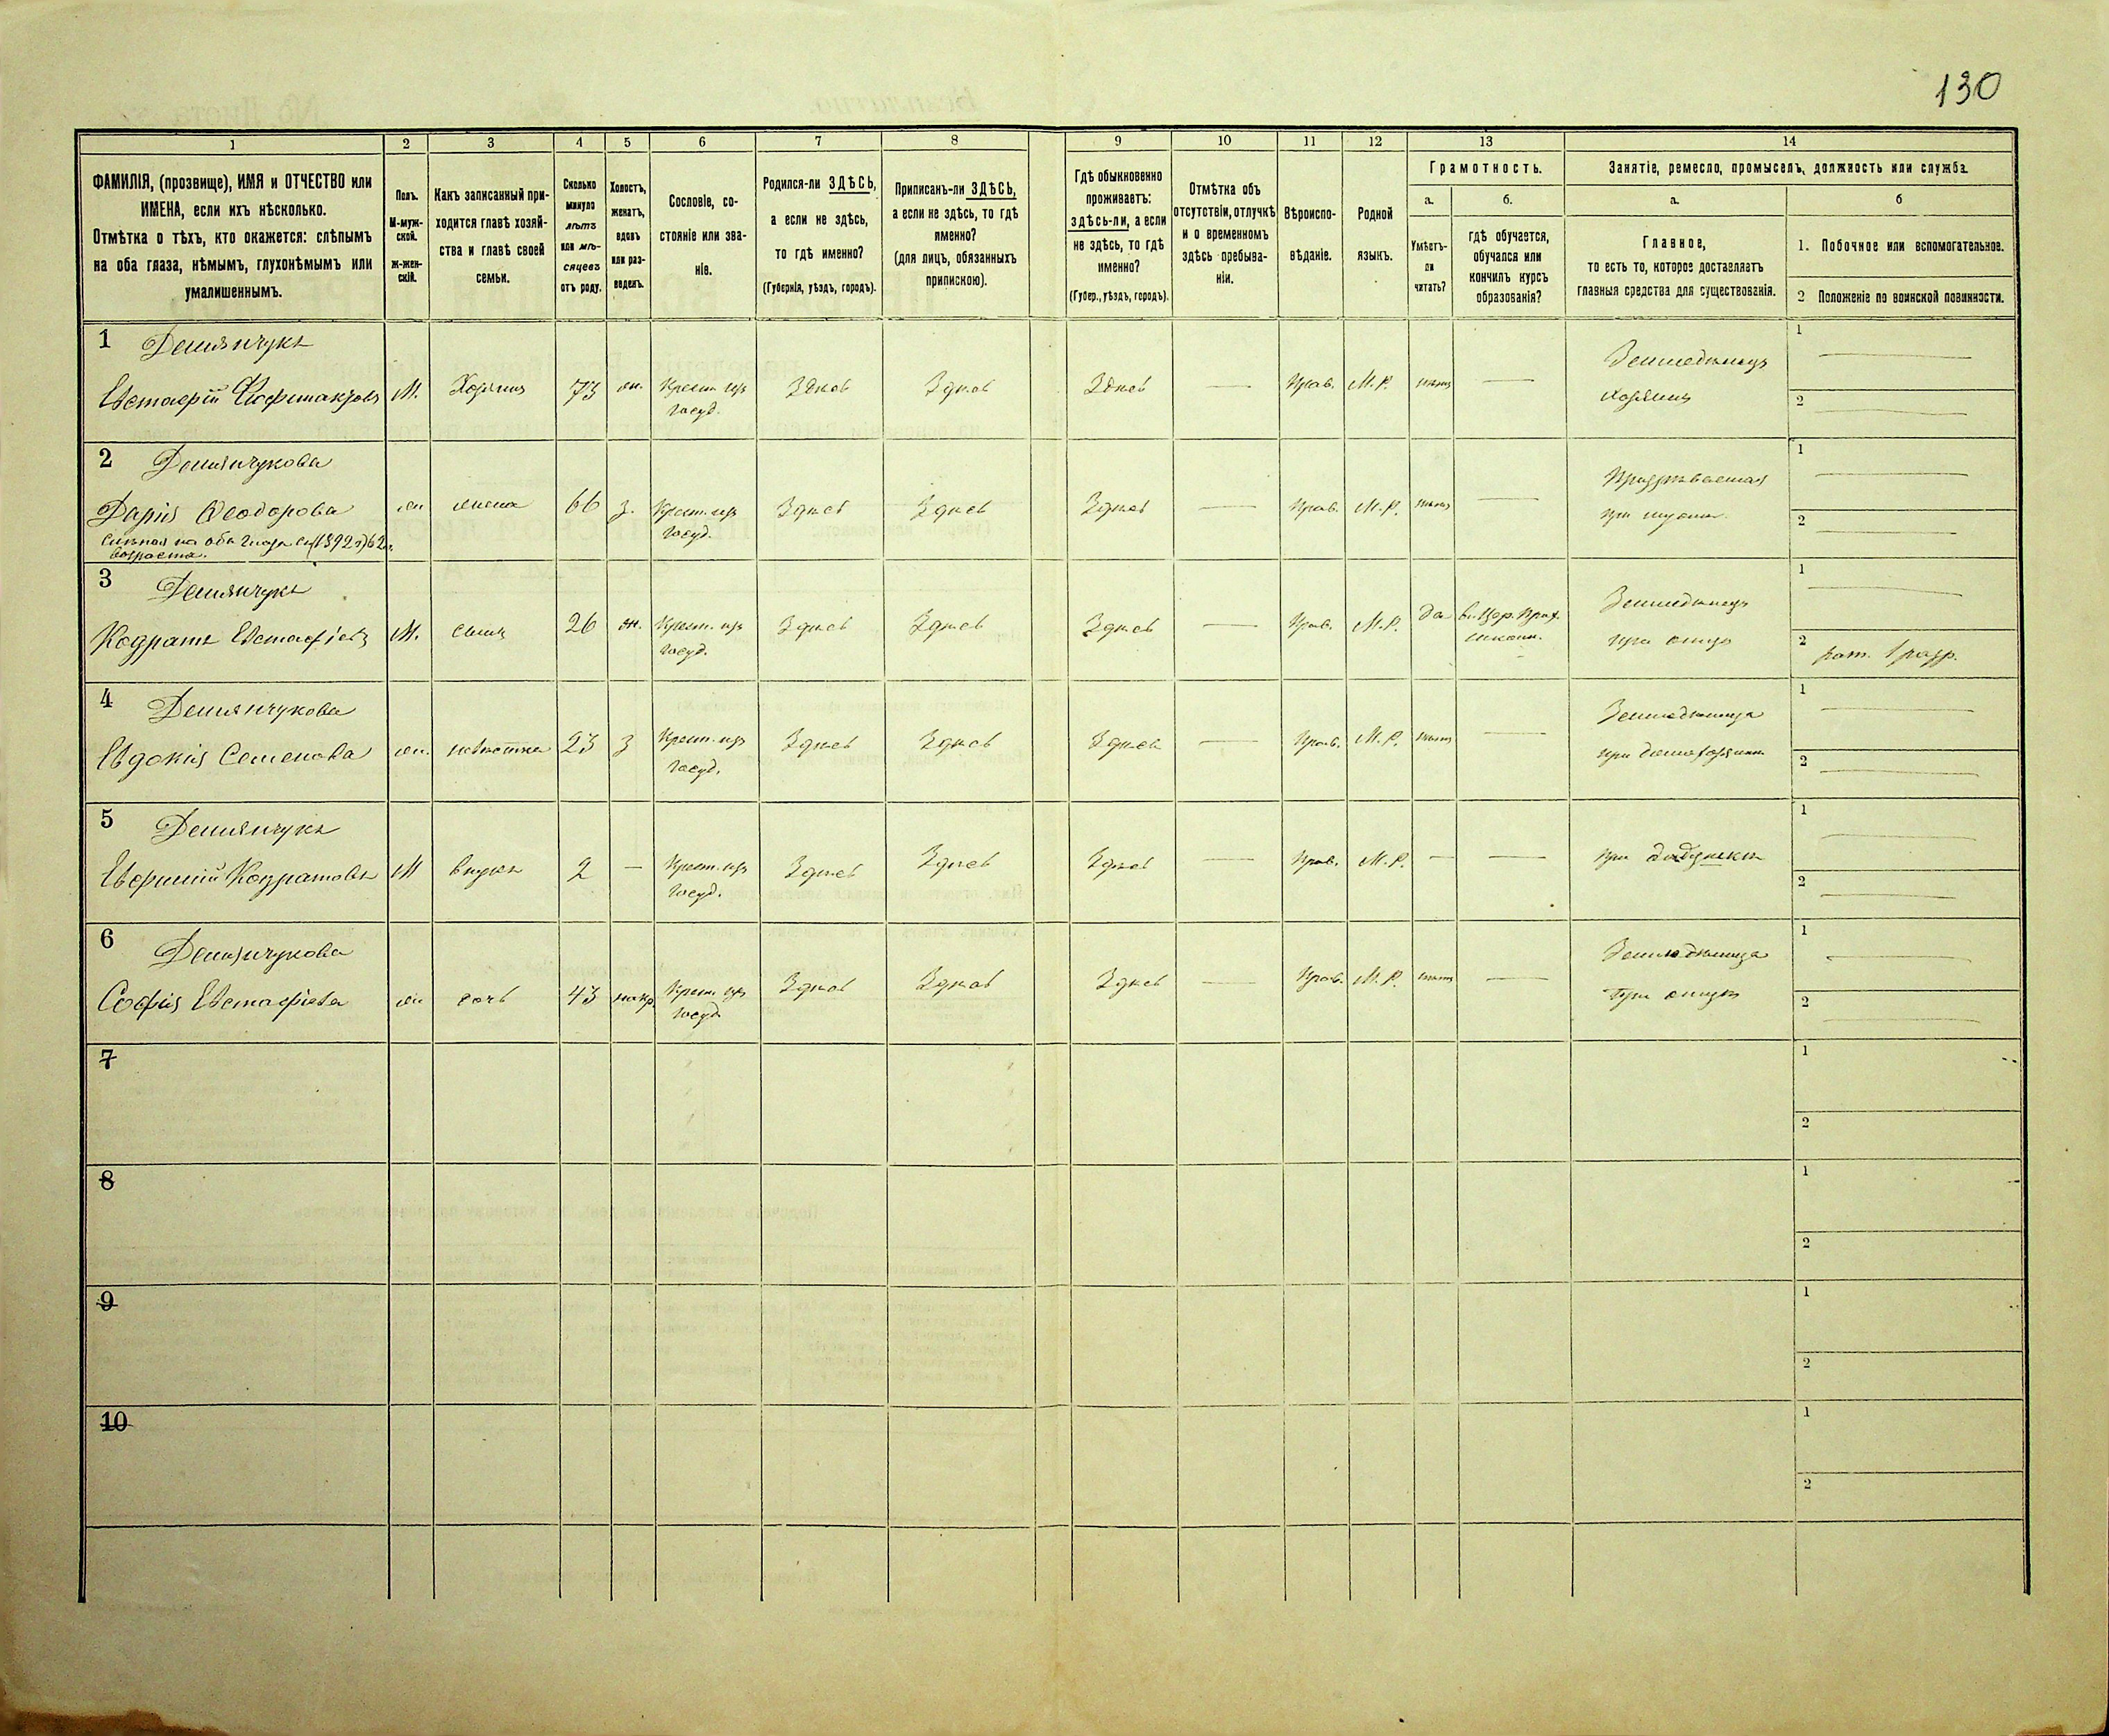 130
1 2 3 4 5 6 7 8 9 10 11 12 13 14
ФАМИЛІЯ, (прозвище), ИМЯ и ОТЧЕСТВО или
ИМЕНА, если ихъ нѣсколько.
Отмѣтка о тѣхъ, кто окажется: слѣпымъ
на оба глаза, нѣмымъ, глухонѣмымъ или
умалишеннымъ.
Полъ.
М-муж-
ской.
Ж-жен-
скій.
Какъ записанный при-
ходится главѣ хозяй-
ства и главѣ своей
семьи.
Сколько
минуло
лѣтъ
или мѣ-
сяцевъ
отъ роду.
Холостъ,
женатъ,
вдовъ
или раз-
веденъ.
Сословіе, со-
стояніе или зва-
ніе.
Родился-ли ЗДѢСЬ,
а если не здѣсь,
то гдѣ именно?
(Губернія, уѣздъ, городъ).
Приписанъ-ли ЗДѢСЬ,
а если не здѣсь, то гдѣ
именно?
(для лицъ, обязанныхъ
припискою).
Гдѣ обыкновенно
проживаетъ:
здѣсь-ли, а если
не здѣсь, то гдѣ
именно?
(Губер., уѣздъ, городъ).
Отмѣтка объ
отсутствіи, отлучкѣ
и о временномъ
здѣсь пребыва-
ніи.
Вѣроиспо-
вѣданіе.
Родной
языкъ.
Грамотность.
а.
Умѣетъ-
ли
читать?
б.
гдѣ обучается,
обучался или
кончилъ курсъ
образованія?
Занятіе, ремесло, промыселъ, должность или служба.
а.
Главное,
то есть то, которое доставляетъ
главныя средства для существованія.
б
1. Побочное или вспомогательное.
2 Положеніе по воинской повинности.
1 Демянчукъ
Евстафій М. Хозяинъ 73 жн. Крест. изъ Здесь Здесь Здесь — Прав. М.Р. нѣтъ — Земледѣлецъ 1 —
госуд. хозяинъ 2 —
2 Демянчукова
Дарія Ѳеодорова жн жена 66 з. Крест. изъ Здесь Здесь Здесь — Прав. М.Р. нѣтъ — 1 —
слѣпая на оба глаза госуд. при мужѣ 2 —
возраста.
3 Демянчукъ
Кодратъ Евстафіевъ М. сынъ 26 жн. Крест. изъ Здесь Здесь Здесь — Прав. М.Р. да въ Цер. Прих. Земледѣлецъ 1 —
госуд. школѣ. при отцѣ 2 рат. 1 разр.
4 Демянчукова
Евдокія Семенова жн. невестка 23 з Крест. изъ Здесь Здесь Здесь — Прав. М.Р. нѣтъ — Земледѣлица 1 —
госуд. при 2 —
5 Демянчукъ
Евфимій Кодратовъ М внукъ 2 — Крест. изъ Здесь Здесь Здесь — Прав. М.Р. — — при дѣдушкѣ 1 —
госуд. 2 —
6 Демянчукова
Софія Евстафіева жн дочь 43 Крест. изъ Здесь Здесь Здесь — Прав. М.Р. нѣтъ — Земледѣлица 1 —
госуд. при отцѣ 2 —
7 1
2
8 1
2
9 1
2
10 1
2